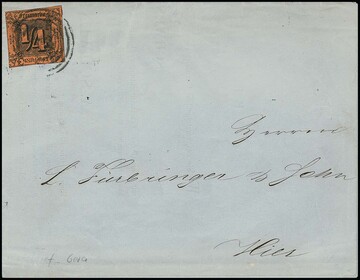 1/4
Herren
L. Fürbringer & Sohn
Hier